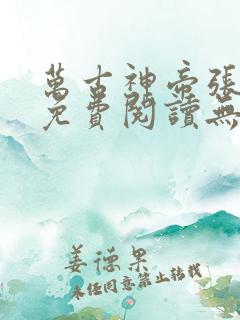 萬古神帝張
免費閱讀無
姜德果
未經同意禁止轉載